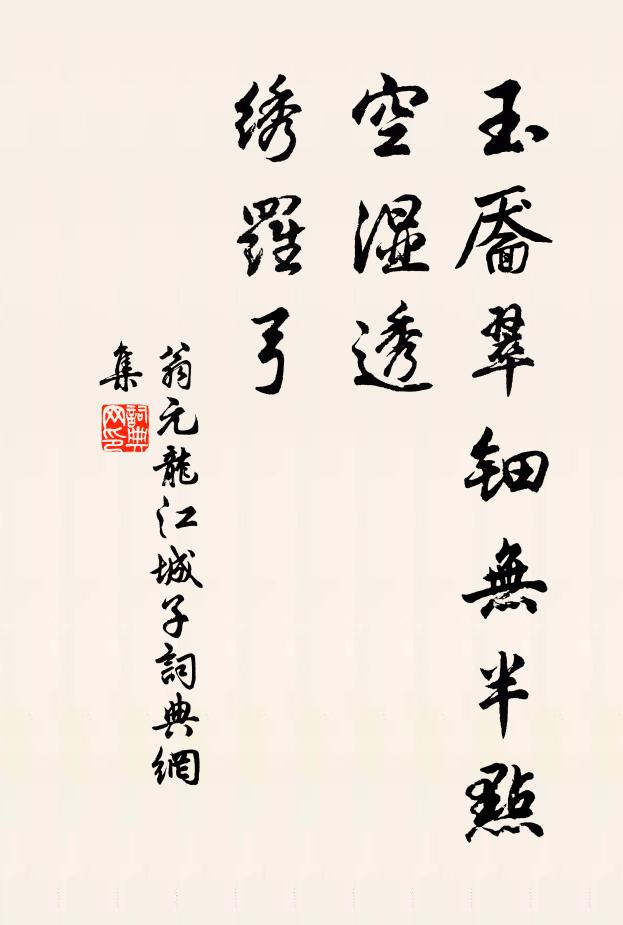 玉靨翠钿無半點
空濕透
绣羅弓
翁元龍江城子詞典網
集
詞典
网印